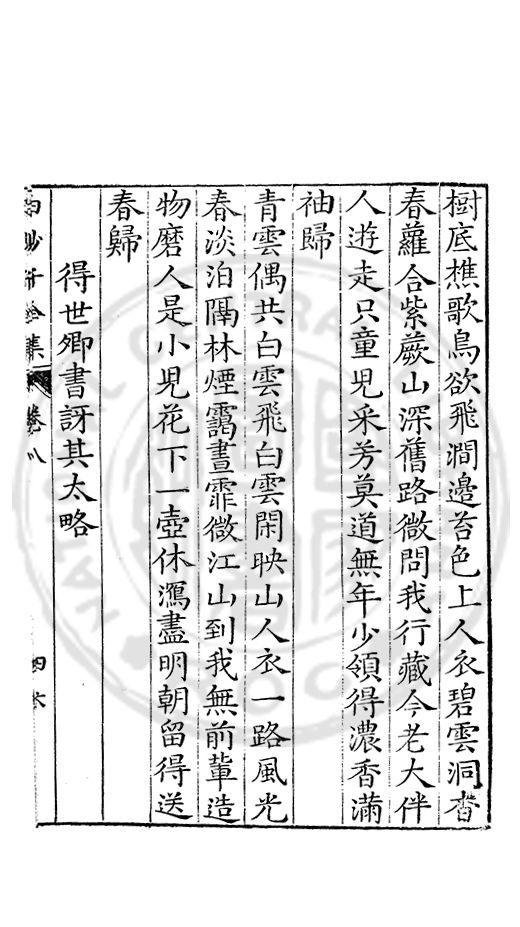 樹底樵歌鳥欲飛澗邊苔色上人衣碧雲洞杳
春蘿合紫蕨山深舊路微問我行藏今老大伴
人遊走只童兒采芳莫道無年少領得濃香滿
袖歸
青雲偶共白雲飛白雲閑映山人衣一路風光
春淡泊隔林煙靄晝霏微江山到我無前輩造
物磨人是小兒花下一壺休瀉盡明朝留得送
春歸
得世卿書訝其太略
卷八